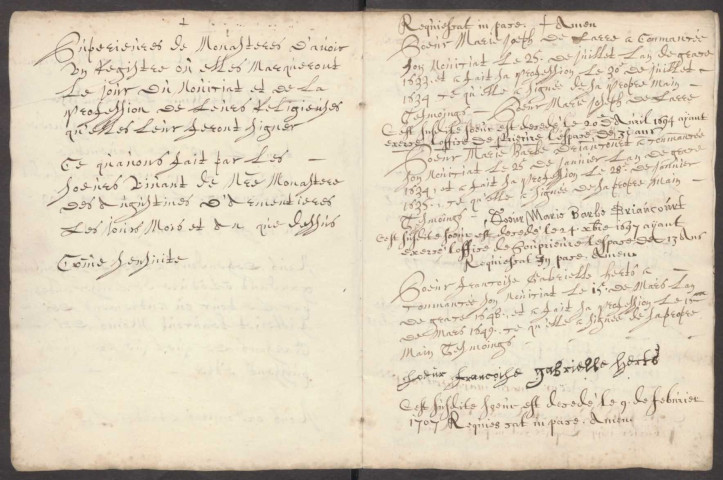 Superieures de Monasteres D'avoir
Un Registre où elles Marqueront
Le jour Du Noviciat et De La
profession De Leurs Religieuses
qu'elles Leur feront signer
Ce qu'avons fait par Les
Soeurs Vivant De Nre Monastere
Des Augistines D'Armentieres
Les Jours Mois et An que Dessus
Come s'ensuite
Requiescat in pace. + Amen
Soeur Marie Joseph De Larre a Commancée
son Noviciat Le 25. De Juillet Lan de grace
1633. et a fait sa profession Le 30. De Juillet
1634. ce qu'elle a signée de sa propre Main
Tesmoings - Soeur Marie Joseph de Larre
Cest susdite soeur est decedé le 20 D'Avril 1694 ayant
exercé l'office de prieure l'espace de 31 ans
Soeur Marie Barbe Briancourt a commancée
son Noviciat Le 25 de Janvier Lan de grace
1634. et a fait sa profession Le 28. de Janvier
1635. ce qu'elle a signée De sa propre Main
Tesmoings - Soeur Marie Barbe Briancourt
Cest susdite soeur est decedé le 4 xbre 1697 ayant
exercé l'office de Souprieure l'espace de 17 ans
Requiescat in pace. Amen
Soeur Françoise Gabrielle Herts a
Commancée son Noviciat Le 15. De Mars Lan
De grace 1648. et a fait sa profession Le 15
De Mars 1649. ce qu'elle a signée de sa propre
Main Tesmoings
Soeur françoise gabrielle herts
Cest susdite soeur est decedé le 9 de febvrier
1707 Requiescat in pace. Amen